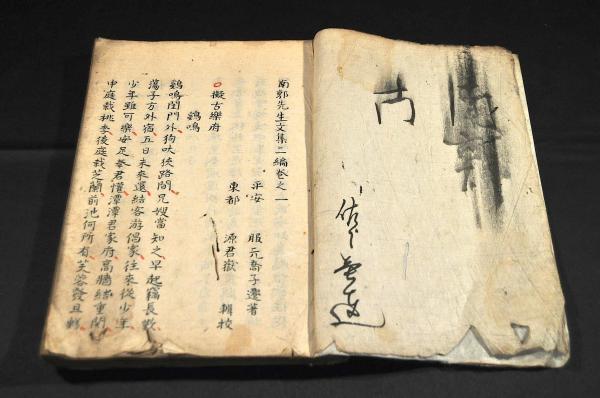 南郭先生文集二編卷之一
平安 服元喬子遷著
東都 源君嶽 輯校
擬古樂府
鷄鳴
鷄鳴閨門外狗吠狹路間兄嫂當知之早起竊長歎
蕩子方外宿五日未來還結客游俠家往來從少年
少年雖可樂安足奉君懽潭潭君家府高牆結重門
中庭栽桃李後庭栽芝蘭前池何所有芙蓉發且鮮